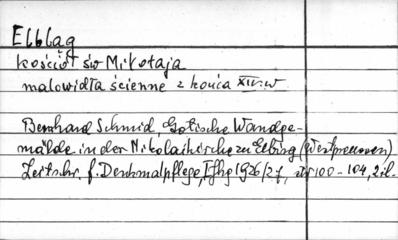 Elbląg
kościół św Mikołaja
malowidła ścienne z końca XIV.w
Bernhard Schmid, Gotische Wandge-
mälde in der Nikolaikirche zu Elbing (Westpreussen)
Zeitschr. f. Denkmalpflege, Jhg 1926/27, str 100-104, 2 il.